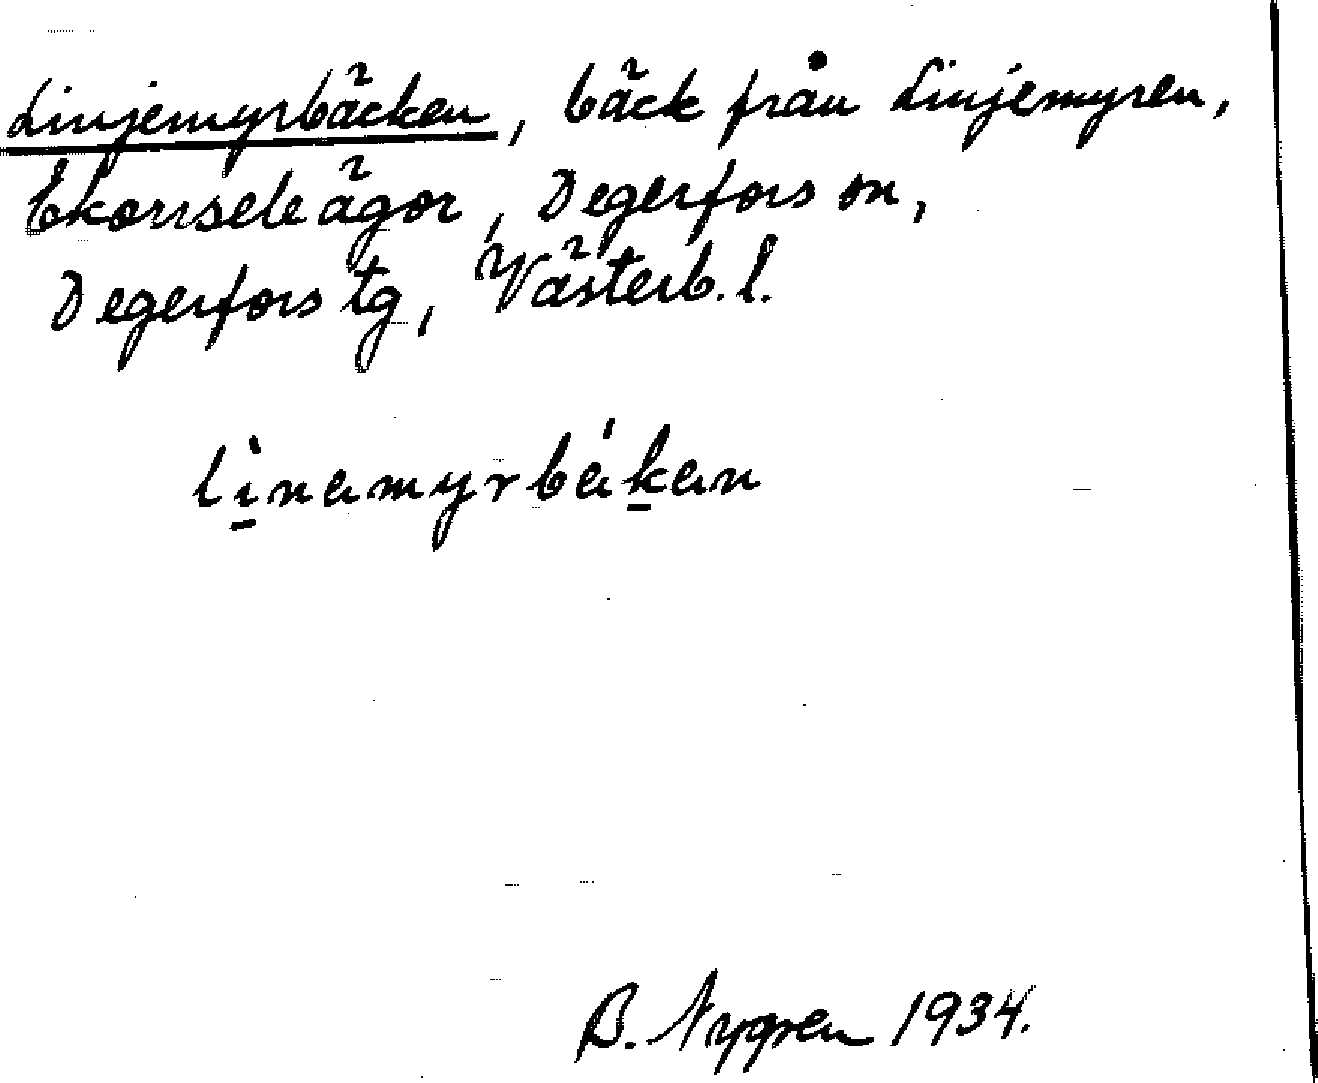 Linjemyrbäcken, bäck från Linjemyren,
Ekorrsele ägor, Degerfors sn,
Degerfors tg, Västerb. l.
lìnamyrbákan
B. Nygren 1934.